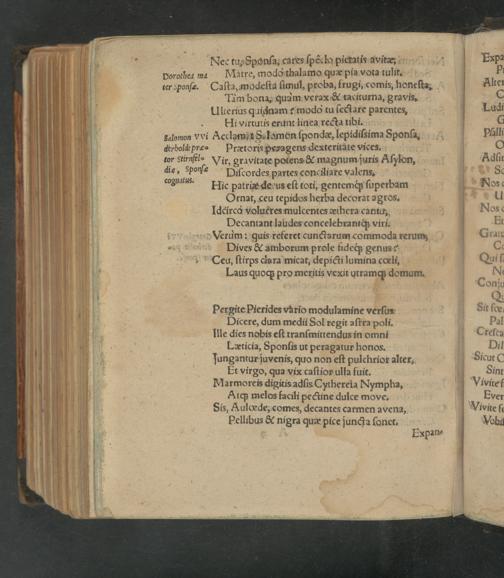 Nec tu, Sponsa, cares specīo pietatis avitæ,
Dorothea ma
ter Sponsæ.
Matre, modo thalamo quæ pia vota tulit.
Casta, modesta simul, proba, frugi, comis, honesta,
Tàm bona, quàm verax & taciturna, gravis.
Ulterius quidnam? modò tu sectare parentes,
Hi virtutis erunt linea recta tibi.
Salomon VVi
derholdt præ-
tor Stirnsel-
diæ, Sponsæ
cognatus.
Acclamat Salomon spondæ, lepidissima Sponsa,
Prætoris peragens dexteritate vices.
Vir, gravitate potens & magnum juris Asylon,
Discordes partes conciliare valens,
Hic patriæ decus est toti, gentemq; superbam
Ornat, ceu tepidos herba decorat agros.
Idcircò volucres mulcentes æthera cantu,
Decantant laudes concelebrantq; viri.
Verùm: quis referet cunctarum commoda rerum,
Dives & amborum prole fideq; genus?
Ceu, stirps clara micat, depicti lumina cœli,
Laus quoq; pro meritis vexit utramq; domum.
Pergite Pierides vario modulamine versus
Dicere, dum medii Sol regit astra poli.
Ille dies nobis est transmittendus in omni
Læticia, Sponsis ut peragatur honos.
Jungantur juvenis, quo non est pulchrior alter,
Et virgo, qua vix castior ulla fuit.
Marmoreis digitis adsis Cythereïa Nympha,
Atq; melos facili pectine dulce move.
Sis, Aulœde, comes, decantes carmen avena,
Pellibus & nigra quæ pice juncta sonet.
Expan-